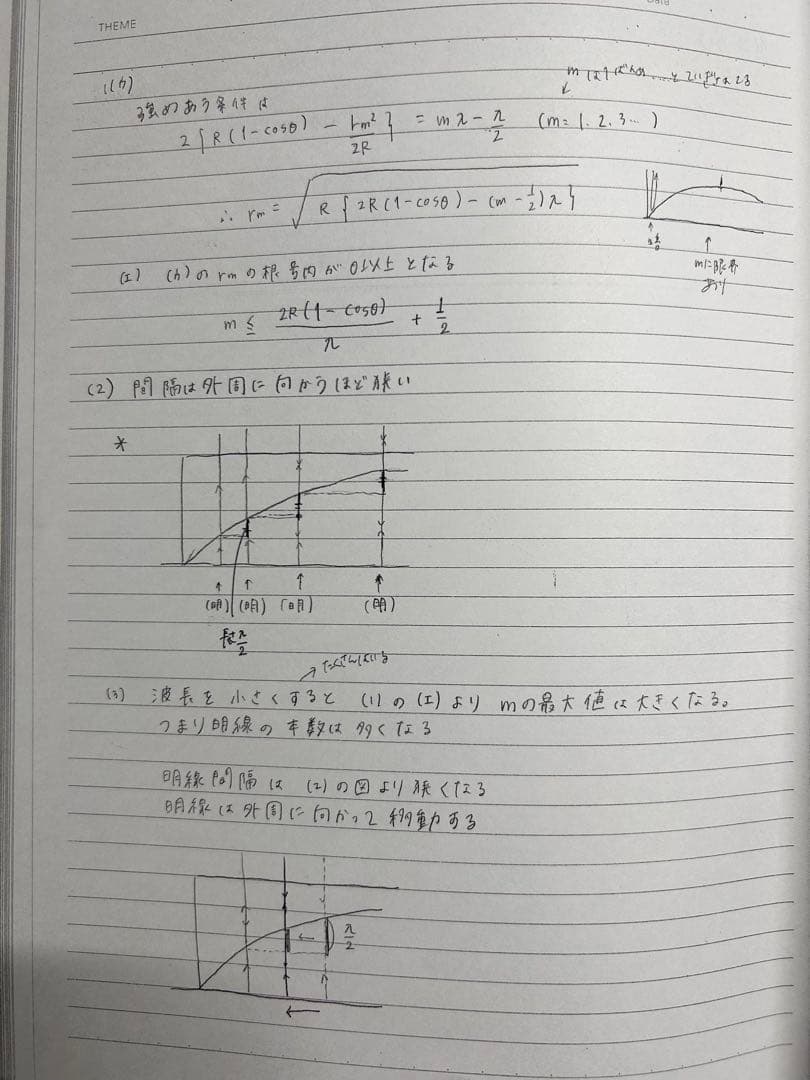 THEME
mは1ばんめ…と
(1)(ウ)
強めあう条件は
2{R(1-cosθ) - rm²/2R} = mλ - λ/2 (m=1.2.3…)
∴ rm = √R{2R(1-cosθ)-(m-1/2)λ}
mに限界
あり
(エ) (ウ)のrmの根号内が0以上となる
m ≦ 2R(1-cosθ)/λ + 1/2
(2) 間隔は外周に向かうほど狭い
*
(明) (明) (明) (明)
長さλ/2
たくさんはいる
(3) 波長を小さくすると (1)の(エ)より mの最大値は大きくなる。
つまり明線の本数は多くなる
明線間隔は (2)の図より狭くなる
明線は外周に向かって移動する
λ/2